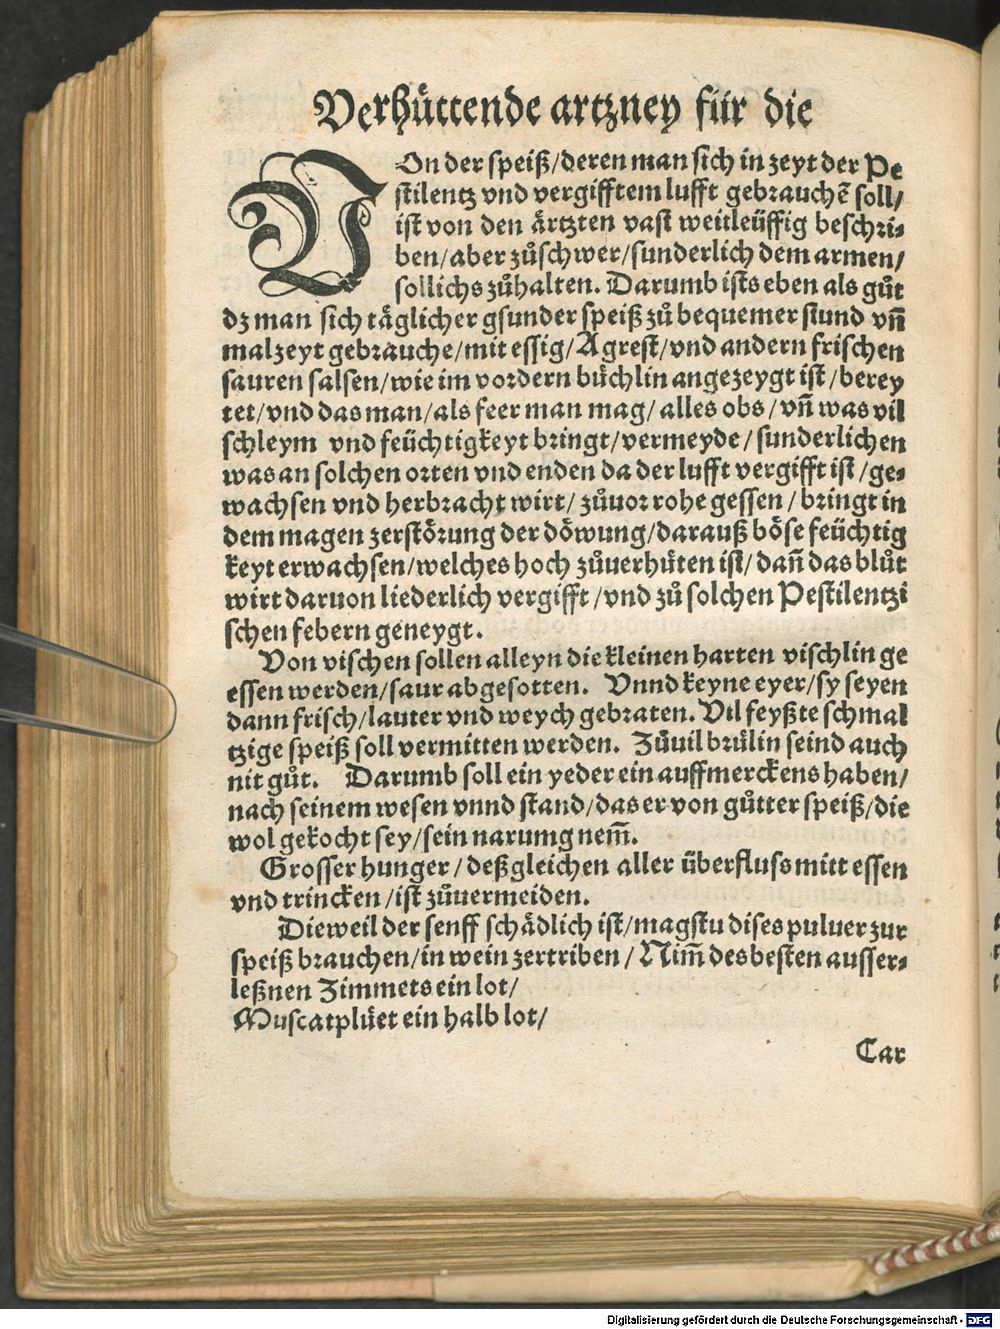 Verhüttende artzney für die
VOn der speiß/deren man sich in zeyt der Pe
stilentz vnd vergifftem lufft gebrauchē soll/
ist von den ärtzten vast weitleüffig beschri-
ben/aber zůschwer/sunderlich dem armen/
sollichs zůhalten. Darumb ists eben als gůt
dz man sich täglicher gsunder speiß zů bequemer stund vñ
malzeyt gebrauche/mit essig/Agrest/vnd andern frischen
sauren salsen/wie im vordern büchlin angezeygt ist/berey
tet/vnd das man/als feer man mag/alles obs/vñ was vil
schleym vnd feüchtigkeyt bringt/vermeyde/sunderlichen
was an solchen orten vnd enden da der lufft vergifft ist/ge-
wachsen vnd herbracht wirt/zůuor rohe gessen/bringt in
dem magen zerstörung der döwung/darauß böse feüchtig
keyt erwachsen/welches hoch zůuerhüten ist/dañ das blůt
wirt daruon liederlich vergifft/vnd zů solchen Pestilentzi
schen febern geneygt.
Von vischen sollen alleyn die kleinen harten vischlin ge
essen werden/saur abgesotten. Vnnd keyne eyer/sy seyen
dann frisch/lauter vnd weych gebraten. Vil feyßte schmal
tzige speiß soll vermitten werden. Zůuil brülin seind auch
nit gůt. Darumb soll ein yeder ein auffmerckens haben/
nach seinem wesen vnnd stand/das er von gůtter speiß/die
wol gekocht sey/sein narumg nem̃.
Grosser hunger/deßgleichen aller überfluss mitt essen
vnd trincken/ist zůuermeiden.
Dieweil der senff schädlich ist/magstu dises puluer zur
speiß brauchen/in wein zertriben/Nim̃ des besten ausser-
leßnen Zimmets ein lot/
Muscatplüet ein halb lot/
Car
Digitalisierung gefördert durch die Deutsche Forschungsgemeinschaft - DFG